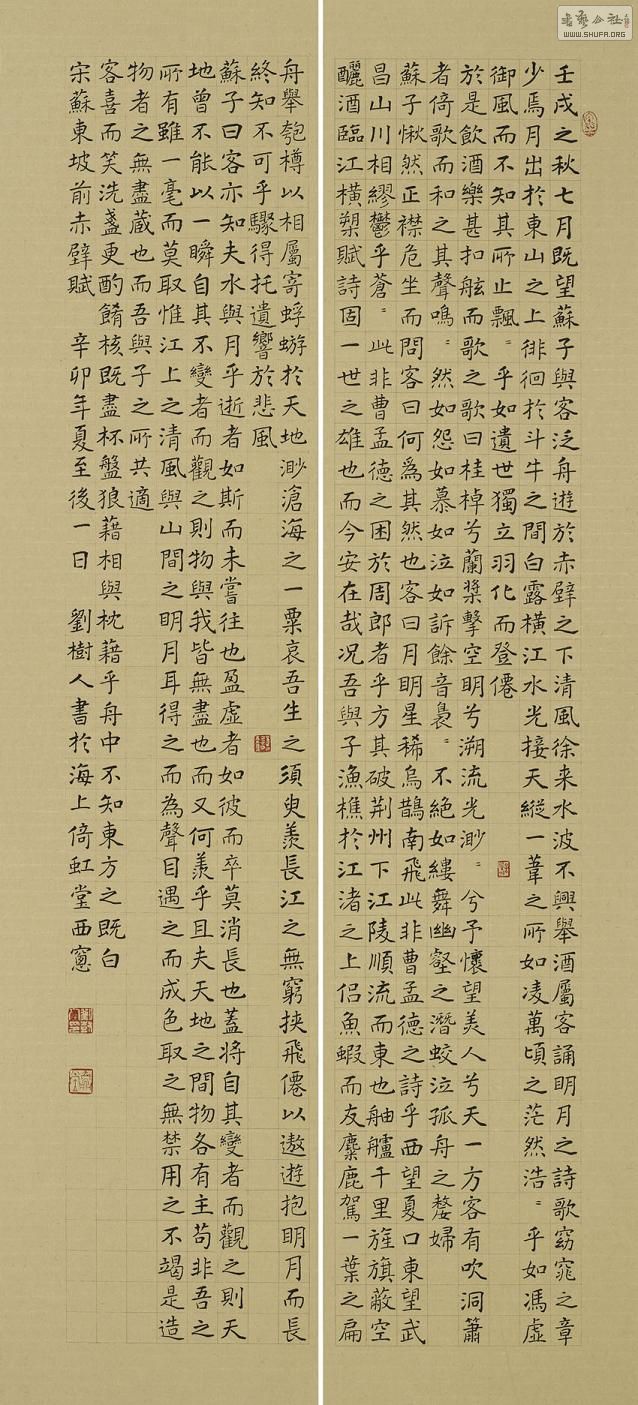 壬戌之秋七月既望蘇子與客泛舟遊於赤壁之下清風徐来水波不興舉酒屬客誦明月之詩歌窈窕之章
少焉月出於東山之上徘徊於斗牛之間白露橫江水光接天縱一葦之所如凌萬頃之茫然浩〻乎如馮虛
御風而不知其所止飄〻乎如遺世獨立羽化而登僊
於是飲酒樂甚扣舷而歌之歌曰桂棹兮蘭槳擊空明兮溯流光渺〻兮予懷望美人兮天一方客有吹洞簫
者倚歌而和之其聲鳴〻然如怨如慕如泣如訴餘音裊〻不絕如縷舞幽壑之潛蛟泣孤舟之嫠婦
蘇子愀然正襟危坐而問客曰何爲其然也客曰月明星稀烏鵲南飛此非曹孟德之詩乎西望夏口東望武
昌山川相繆鬱乎蒼〻此非曹孟德之困於周郎者乎方其破荆州下江陵順流而東也舳艫千里旌旗蔽空
釃酒臨江橫槊賦詩固一世之雄也而今安在哉况吾與子漁樵於江渚之上侶魚蝦而友麋鹿駕一葉之扁
舟舉匏樽以相屬寄蜉蝣於天地渺滄海之一粟哀吾生之須臾羨長江之無窮挾飛僊以遨遊抱明月而長
終知不可乎驟得托遺響於悲風
蘇子曰客亦知夫水與月乎逝者如斯而未嘗往也盈虛者如彼而卒莫消長也蓋將自其變者而觀之則天
地曾不能以一瞬自其不變者而觀之則物與我皆無盡也而又何羨乎且夫天地之間物各有主苟非吾之
所有雖一毫而莫取惟江上之清風與山間之明月耳得之而為聲目遇之而成色取之無禁用之不竭是造
物者之無盡蔵也而吾與子之所共適
客喜而笑洗盞更酌餚核既盡杯盤狼藉相與枕藉乎舟中不知東方之既白
宋蘇東坡前赤壁賦 辛卯年夏至後一日 劉樹人書於海上倚虹堂西窗
WWW.SHUFA.ORG